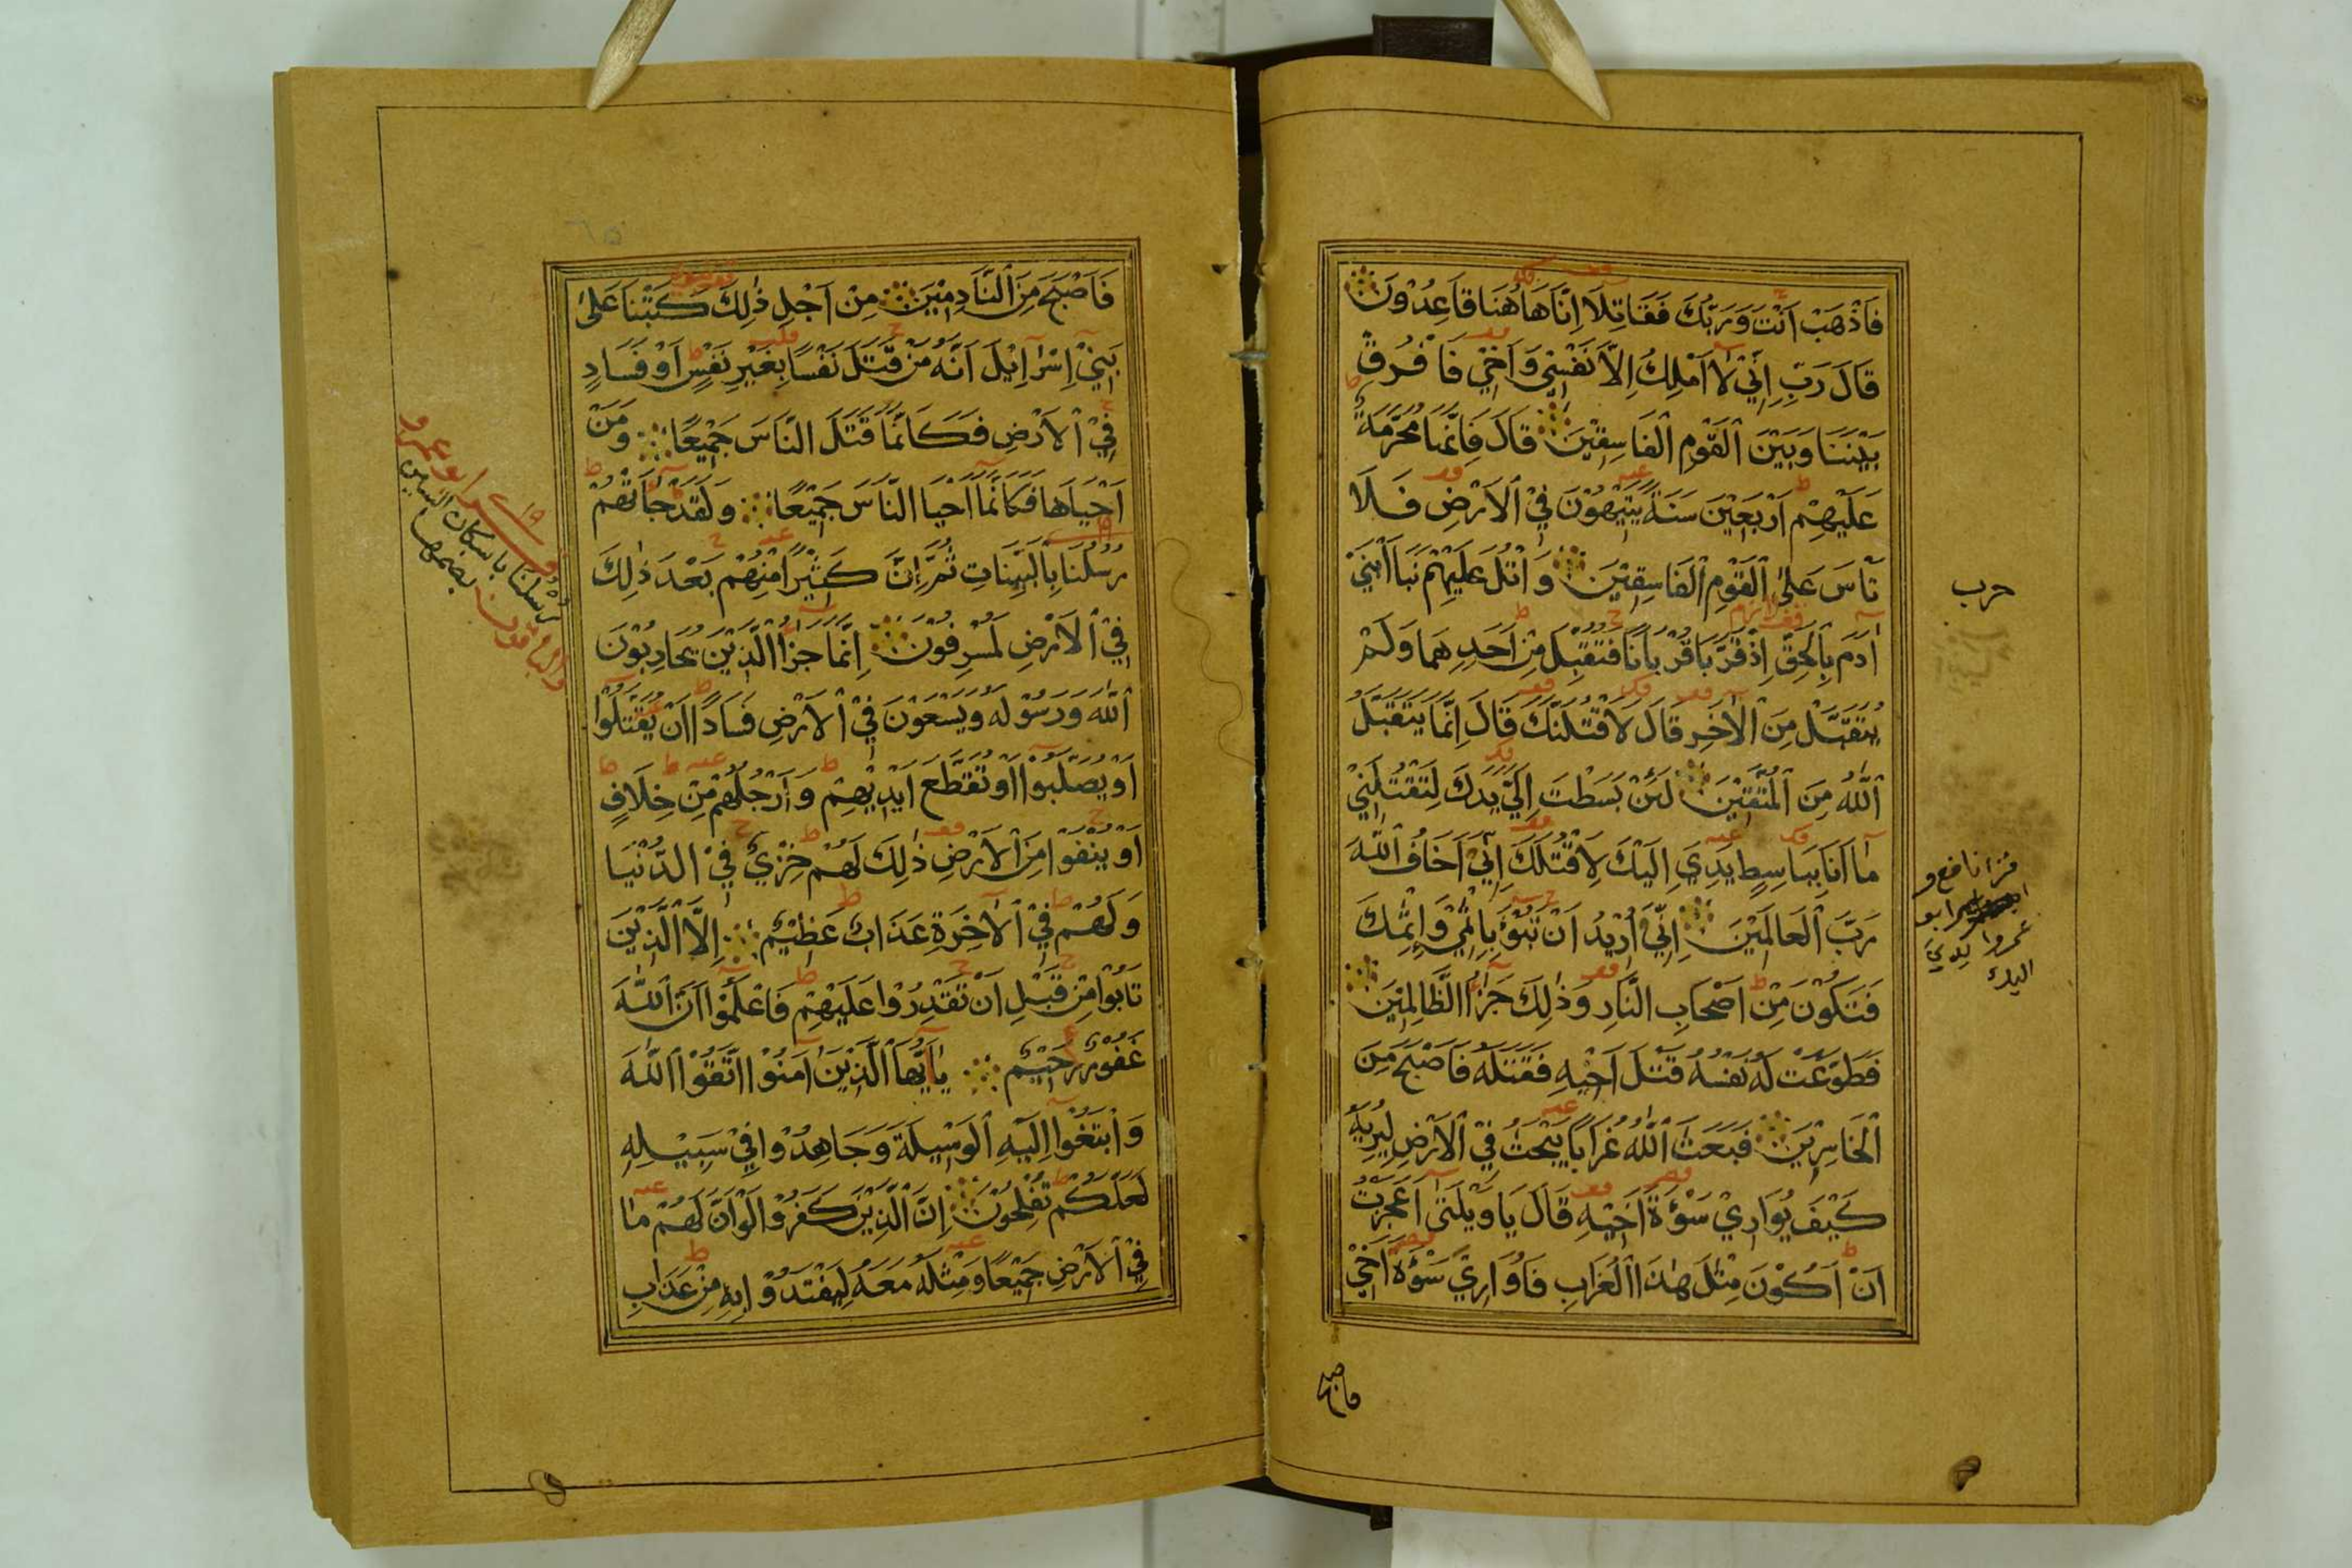 فَاذْهَبْ اَنْتَ وَرَبُّكَ فَقَاتِلَا اِنَّا هَاهُنَا قَاعِدُوْنَ
قَالَ رَبِّ اِنِّيْ لَا اَمْلِكُ اِلَّا نَفْسِيْ وَاَخِيْ فَافْرُقْ
بَيْنَنَا وَبَيْنَ الْقَوْمِ الْفَاسِقِيْنَ قَالَ فَاِنَّهَا مُحَرَّمَةٌ
عَلَيْهِمْ اَرْبَعِيْنَ سَنَةً يَتِيْهُوْنَ فِيْ الْاَرْضِ فَلَا
تَأْسَ عَلَى الْقَوْمِ الْفَاسِقِيْنَ وَاتْلُ عَلَيْهِمْ نَبَاَ ابْنَيْ
اٰدَمَ بِالْحَقِّ اِذْ قَرَّبَا قُرْبَانًا فَتُقُبِّلَ مِنْ اَحَدِهِمَا وَلَمْ
يُتَقَبَّلْ مِنَ الْاٰخَرِ قَالَ لَاَقْتُلَنَّكَ قَالَ اِنَّمَا يَتَقَبَّلُ
اللّٰهُ مِنَ الْمُتَّقِيْنَ لَئِنْ بَسَطْتَ اِلَيَّ يَدَكَ لِتَقْتُلَنِيْ
مَا اَنَا بِبَاسِطٍ يَدِيَ اِلَيْكَ لِاَقْتُلَكَ اِنِّيْ اَخَافُ اللّٰهَ
رَبَّ الْعَالَمِيْنَ اِنِّيْ اُرِيْدُ اَنْ تَبُوْءَ بِاِثْمِيْ وَاِثْمِكَ
فَتَكُوْنَ مِنْ اَصْحَابِ النَّارِ وَذٰلِكَ جَزَاءُ الظَّالِمِيْنَ
فَطَوَّعَتْ لَهُ نَفْسُهُ قَتْلَ اَخِيْهِ فَقَتَلَهُ فَاَصْبَحَ مِنَ
الْخَاسِرِيْنَ فَبَعَثَ اللّٰهُ غُرَابًا يَبْحَثُ فِيْ الْاَرْضِ لِيُرِيَهُ
كَيْفَ يُوَارِيْ سَوْءَةَ اَخِيْهِ قَالَ يَا وَيْلَتٰى اَعَجَزْتُ
اَنْ اَكُوْنَ مِثْلَ هٰذَا الْغُرَابِ فَاُوَارِيَ سَوْءَةَ اَخِيْ
فاصبح
حرب
قرا نافع و
ابو
عمرو يدي
اليك
فَاَصْبَحَ مِنَ النَّادِمِيْنَ مِنْ اَجْلِ ذٰلِكَ كَتَبْنَا عَلٰى
بَنِيْ اِسْرَائِيْلَ اَنَّهُ مَنْ قَتَلَ نَفْسًا بِغَيْرِ نَفْسٍ اَوْ فَسَادٍ
فِيْ الْاَرْضِ فَكَاَنَّمَا قَتَلَ النَّاسَ جَمِيْعًا وَمَنْ
اَحْيَاهَا فَكَاَنَّمَا اَحْيَا النَّاسَ جَمِيْعًا وَلَقَدْ جَاءَتْهُمْ
رُسُلُنَا بِالْبَيِّنَاتِ ثُمَّ اِنَّ كَثِيْرًا مِنْهُمْ بَعْدَ ذٰلِكَ
فِيْ الْاَرْضِ لَمُسْرِفُوْنَ اِنَّمَا جَزَاءُ الَّذِيْنَ يُحَارِبُوْنَ
اللّٰهَ وَرَسُوْلَهُ وَيَسْعَوْنَ فِيْ الْاَرْضِ فَسَادًا اَنْ يُقَتَّلُوْا
اَوْ يُصَلَّبُوْا اَوْ تُقَطَّعَ اَيْدِيْهِمْ وَاَرْجُلُهُمْ مِنْ خِلَافٍ
اَوْ يُنْفَوْا مِنَ الْاَرْضِ ذٰلِكَ لَهُمْ خِزْيٌ فِيْ الدُّنْيَا
وَلَهُمْ فِيْ الْاٰخِرَةِ عَذَابٌ عَظِيْمٌ اِلَّا الَّذِيْنَ
تَابُوْا مِنْ قَبْلِ اَنْ تَقْدِرُوْا عَلَيْهِمْ فَاعْلَمُوْا اَنَّ اللّٰهَ
غَفُوْرٌ رَحِيْمٌ يَا اَيُّهَا الَّذِيْنَ اٰمَنُوْا اتَّقُوْا اللّٰهَ
وَابْتَغُوْا اِلَيْهِ الْوَسِيْلَةَ وَجَاهِدُوْا فِيْ سَبِيْلِهِ
لَعَلَّكُمْ تُفْلِحُوْنَ اِنَّ الَّذِيْنَ كَفَرُوْا لَوْ اَنَّ لَهُمْ مَا
فِيْ الْاَرْضِ جَمِيْعًا وَمِثْلَهُ مَعَهُ لِيَفْتَدُوْا بِهِ مِنْ عَذَابِ
ابو عمرو
رسلنا باسكان السين
والباقون بضمها